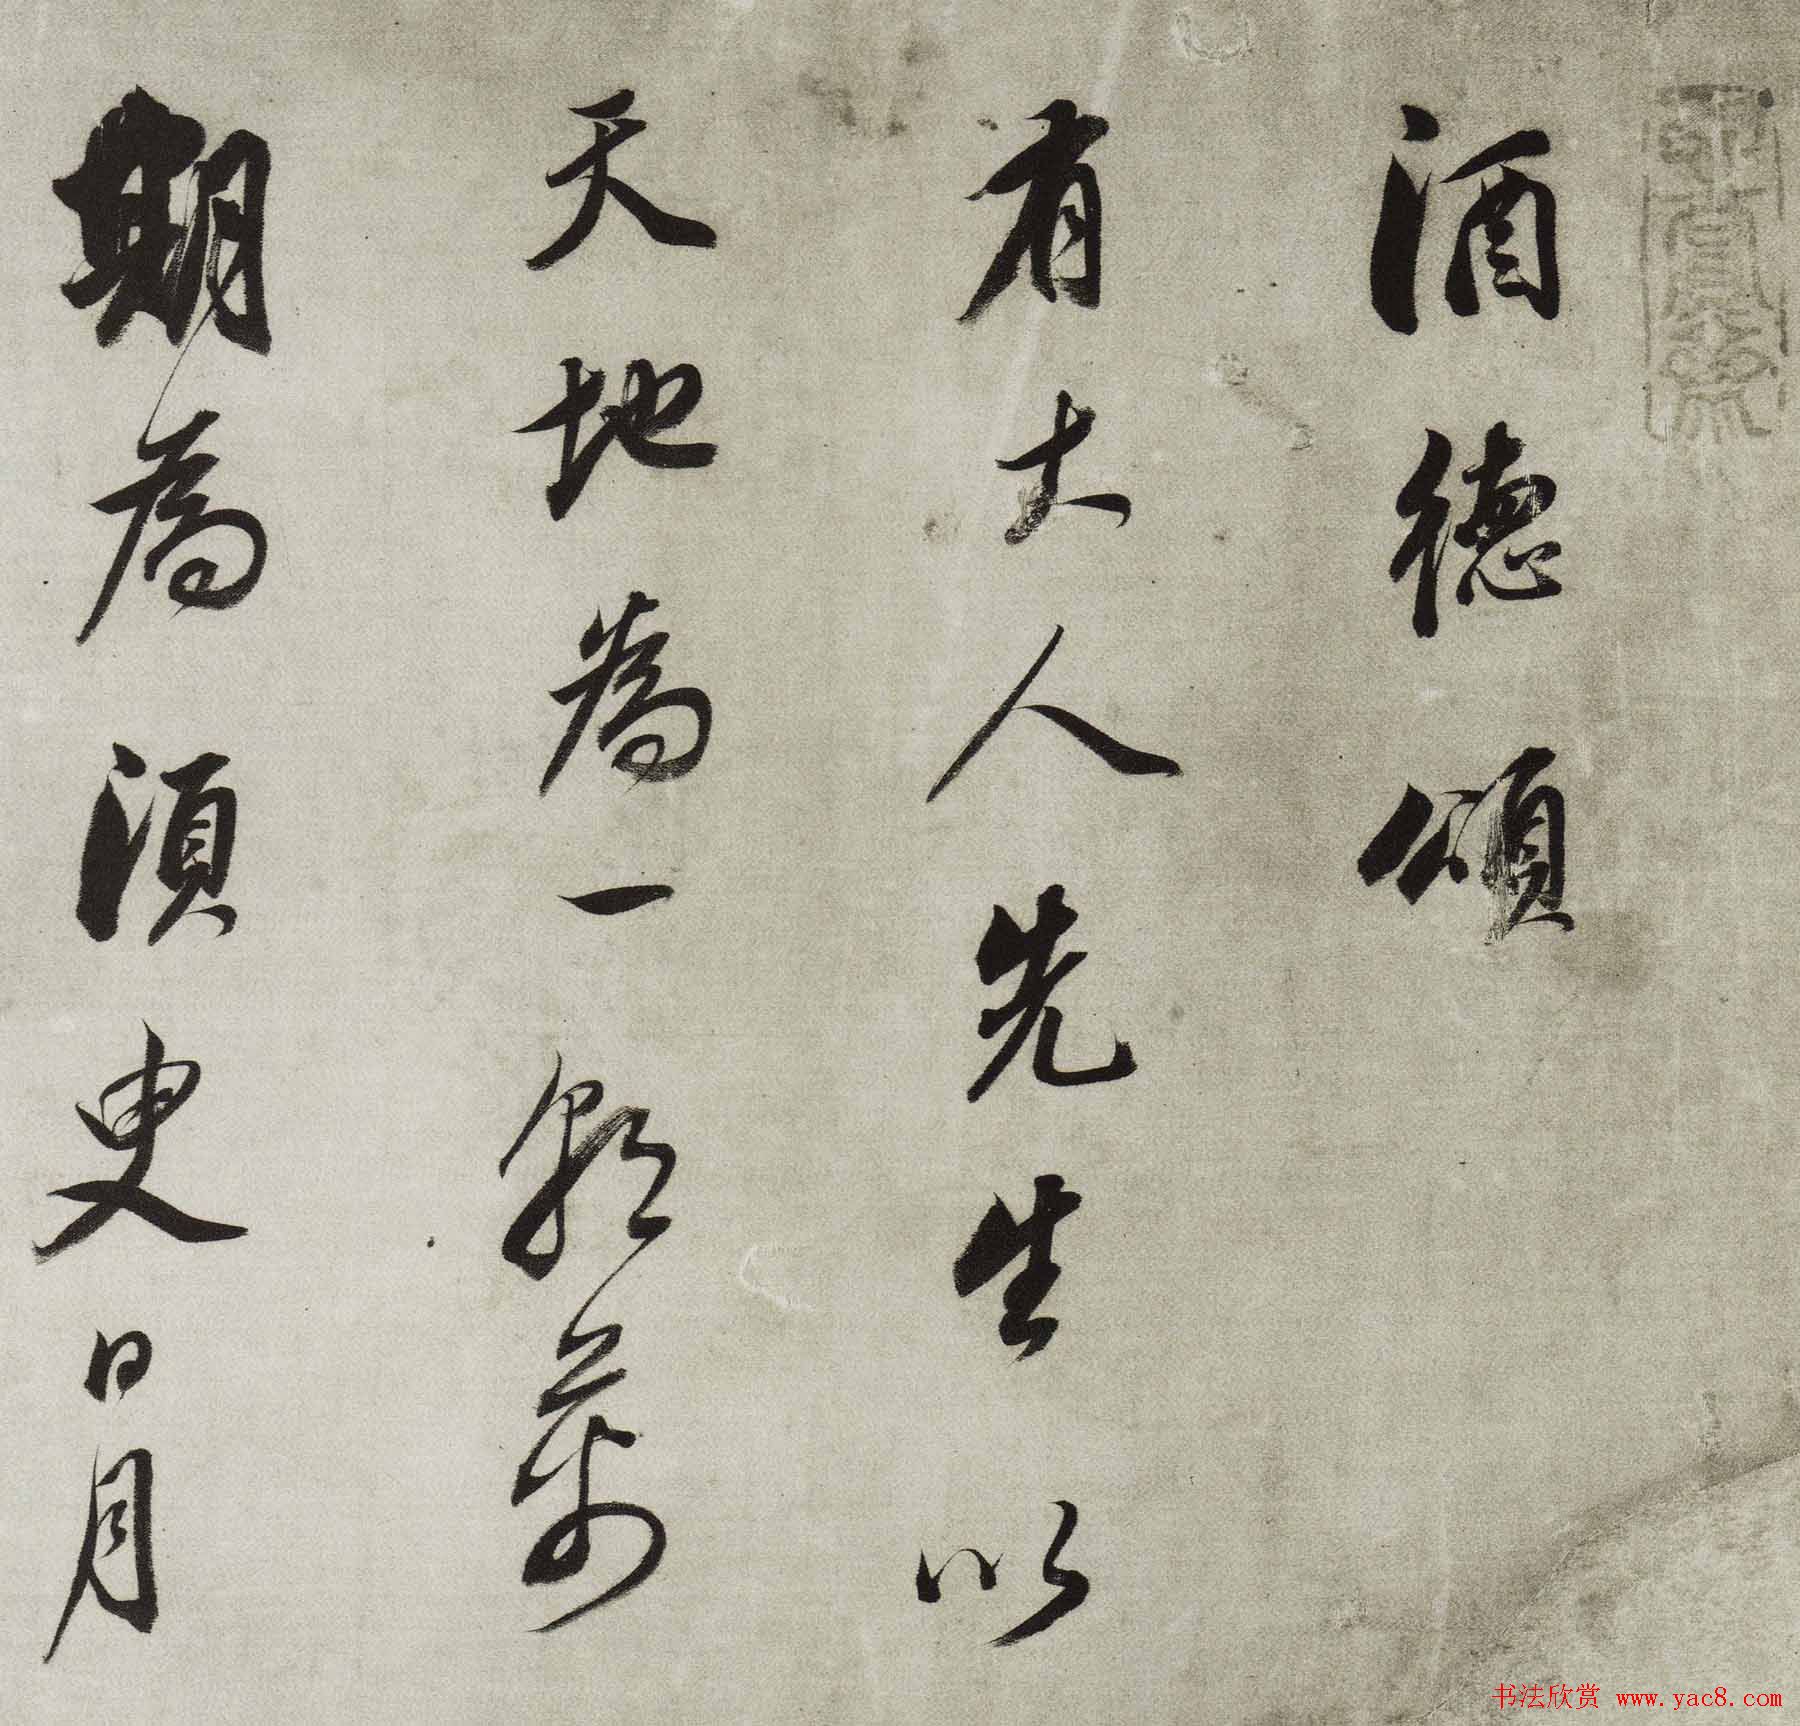 酒德頌
有大人先生以
天地為一朝萬
期為須臾日月
书法欣赏 www.yac8.com